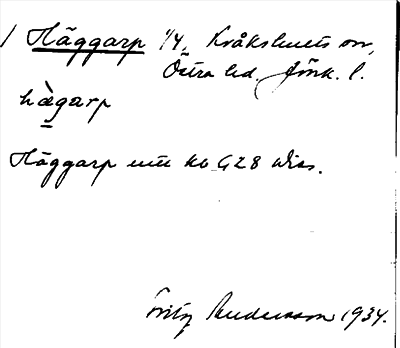 1 Häggarp 1/4, Kråkshults sn,
Östra hd. Jönk. l.
hàgarp
Häggarp utt kb G28 Wiss.
Fritz Andersson 1934.